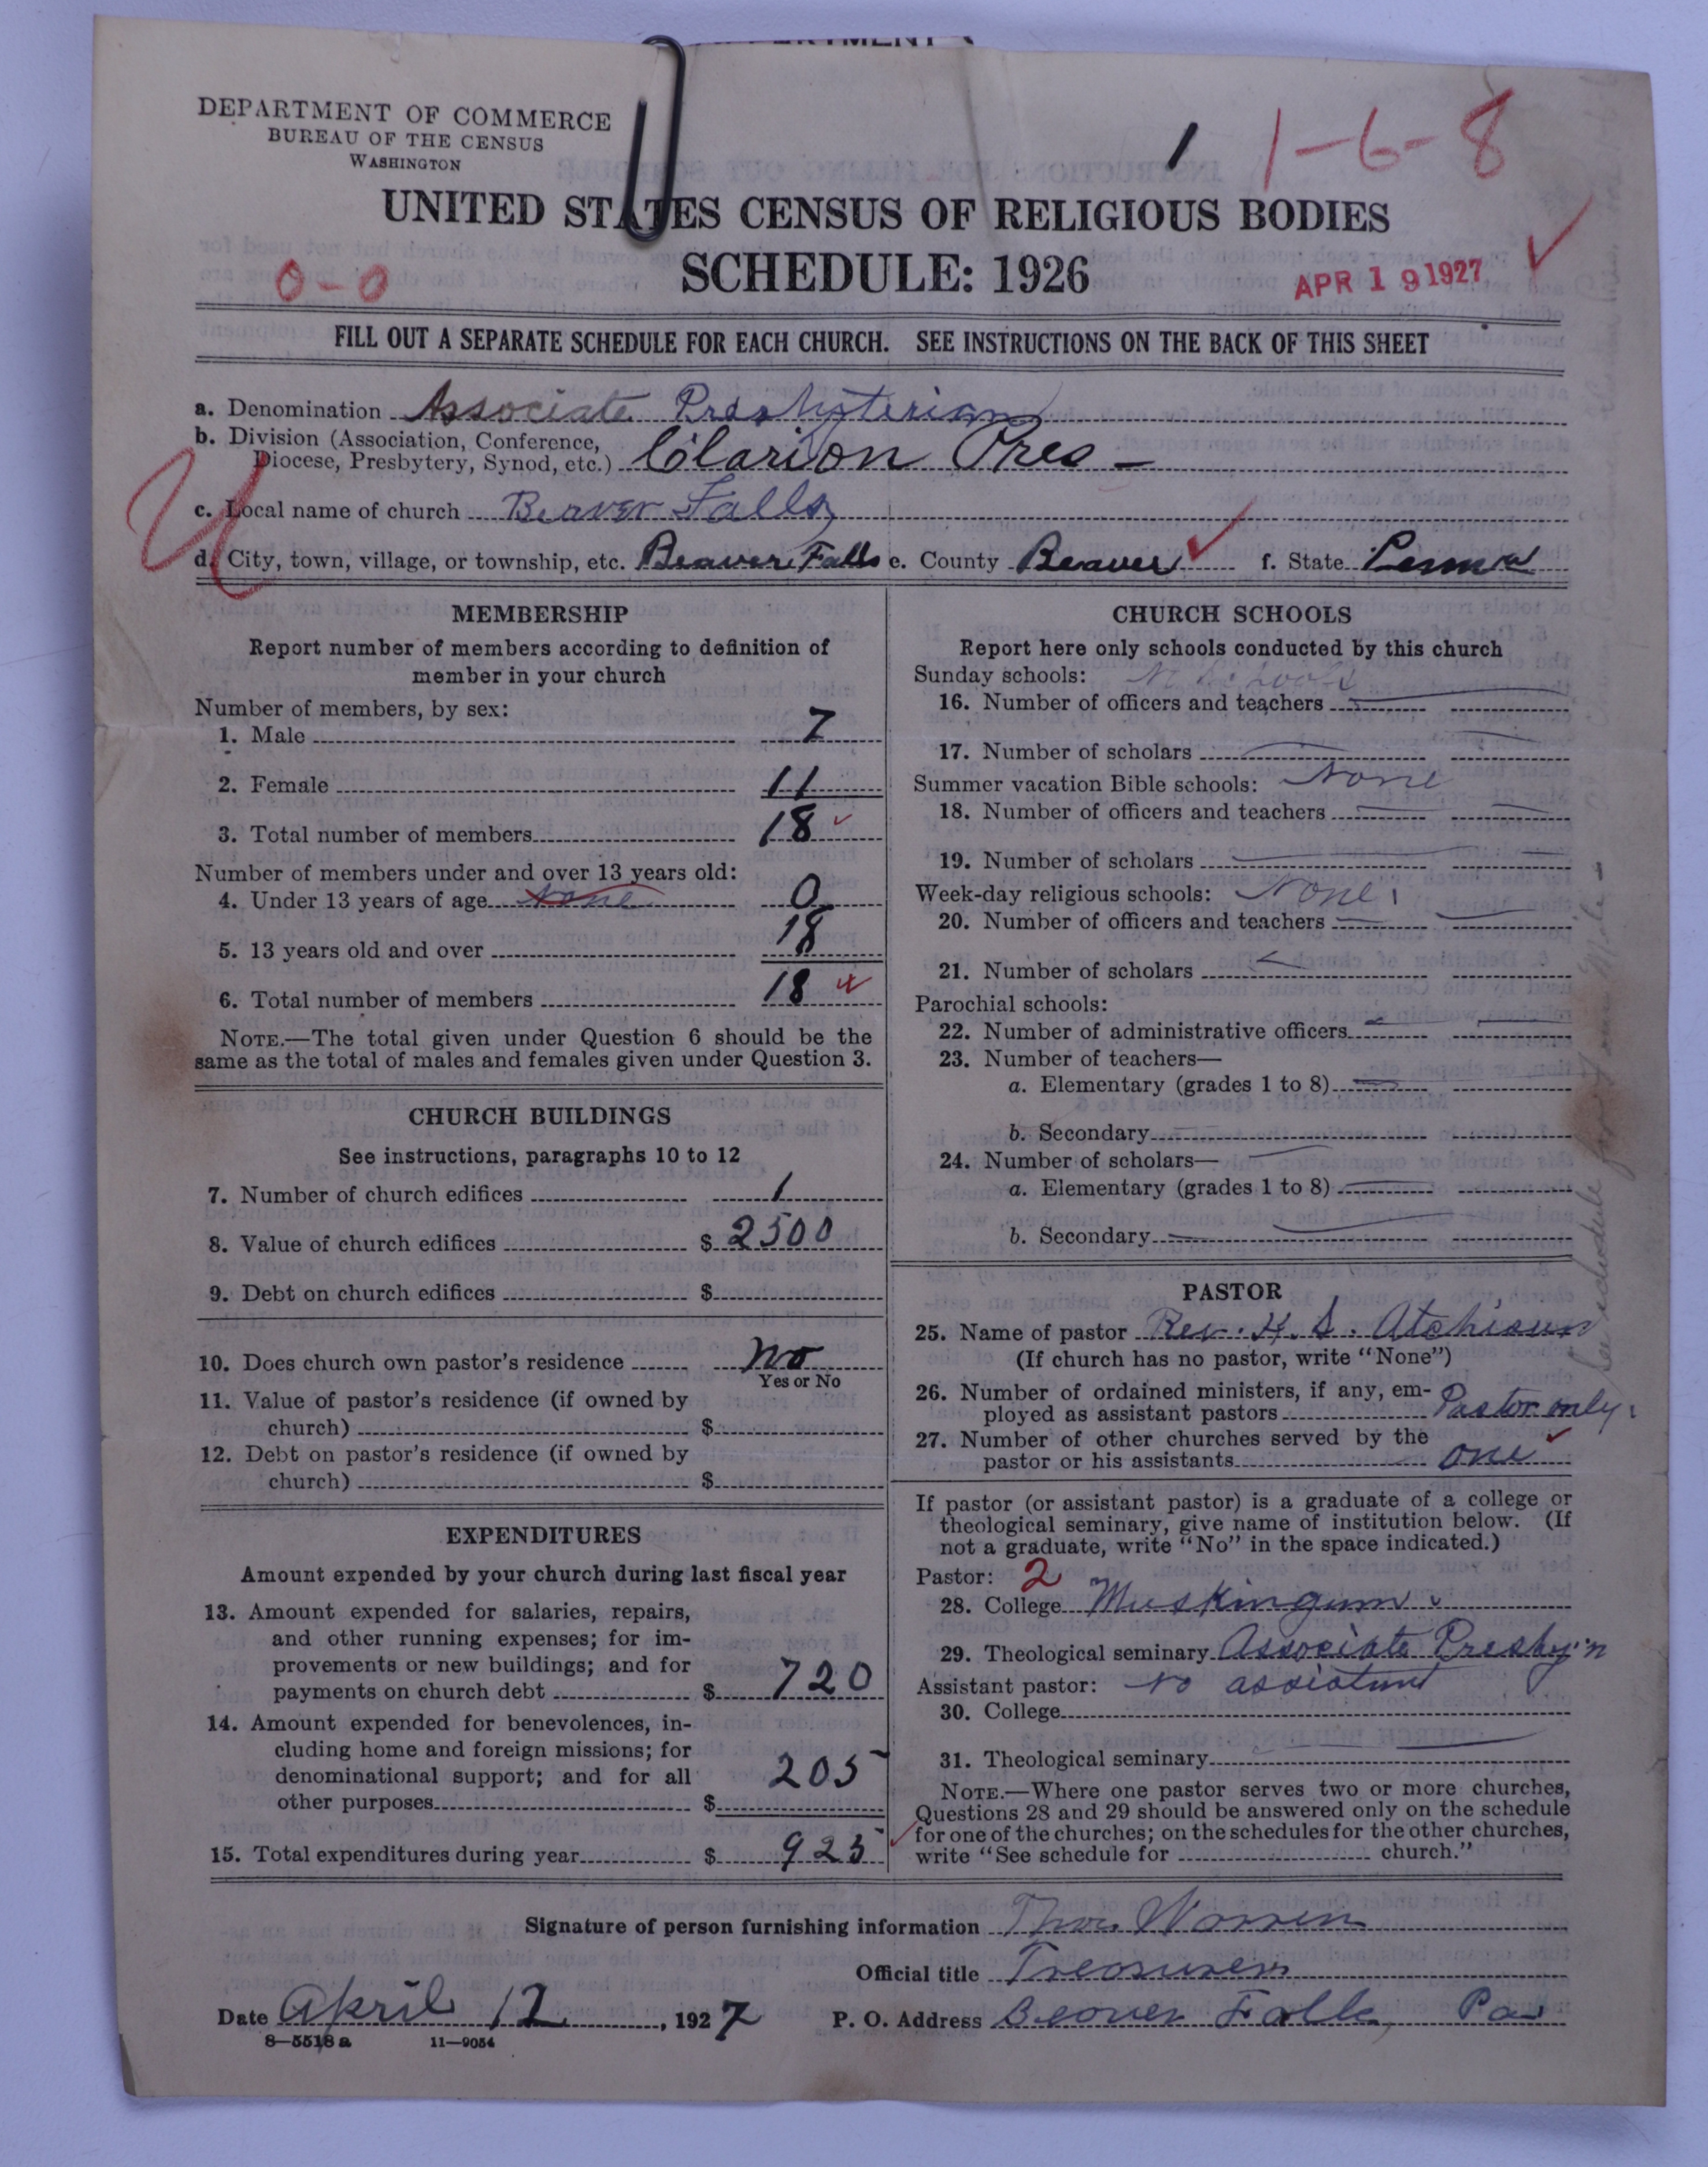 DEPARTMENT OF COMMERCE
BUREAU OF THE CENSUS
WASHINGTON
1 1-6-8
UNITED STATES CENSUS OF RELIGIOUS BODIES
SCHEDULE: 1926
0-0
APR 19 1927
FILL OUT A SEPARATE SCHEDULE FOR EACH CHURCH. SEE INSTRUCTIONS ON THE BACK OF THIS SHEET
a. Denomination Associate Presbyterian
b. Division (Association, Conference,
Diocese, Presbytery, Synod, etc.) Clarion Pres -
c. Local name of church Beaver Falls
d. City, town, village, or township, etc. Beaver Falls e. County Beaver f. State Penna
MEMBERSHIP
Report number of members according to definition of
member in your church
Number of members, by sex:
1. Male 7
2. Female 11
3. Total number of members 18
Number of members under and over 13 years old:
4. Under 13 years of age none 0
5. 13 years old and over 18
6. Total number of members 18
NOTE.—The total given under Question 6 should be the
same as the total of males and females given under Question 3.
CHURCH BUILDINGS
See instructions, paragraphs 10 to 12
7. Number of church edifices 1
8. Value of church edifices $ 2500
9. Debt on church edifices $
10. Does church own pastor's residence No
Yes or No
11. Value of pastor's residence (if owned by
church) $
12. Debt on pastor's residence (if owned by
church) $
EXPENDITURES
Amount expended by your church during last fiscal year
13. Amount expended for salaries, repairs,
and other running expenses; for im-
provements or new buildings; and for
payments on church debt $ 720
14. Amount expended for benevolences, in-
cluding home and foreign missions; for
denominational support; and for all
other purposes $ 205
15. Total expenditures during year $ 925
CHURCH SCHOOLS
Report here only schools conducted by this church
Sunday schools:
16. Number of officers and teachers
17. Number of scholars
Summer vacation Bible schools: None
18. Number of officers and teachers
19. Number of scholars
Week-day religious schools: None
20. Number of officers and teachers
21. Number of scholars
Parochial schools:
22. Number of administrative officers
23. Number of teachers—
a. Elementary (grades 1 to 8)
b. Secondary
24. Number of scholars—
a. Elementary (grades 1 to 8)
b. Secondary
PASTOR
25. Name of pastor Rev. H. S. Atchison
(If church has no pastor, write "None")
26. Number of ordained ministers, if any, em-
ployed as assistant pastors Pastor only
27. Number of other churches served by the
pastor or his assistants one
If pastor (or assistant pastor) is a graduate of a college or
theological seminary, give name of institution below. (If
not a graduate, write "No" in the space indicated.)
Pastor: 2
28. College Muskingum
29. Theological seminary Associate Presby'n
Assistant pastor: No assistant
30. College
31. Theological seminary
NOTE.—Where one pastor serves two or more churches,
Questions 28 and 29 should be answered only on the schedule
for one of the churches; on the schedules for the other churches,
write "See schedule for church."
Signature of person furnishing information Thos. Warren
Official title Treasurer
Date April 12, 1927 P. O. Address Beaver Falls, Pa
8—5518 a 11—9054